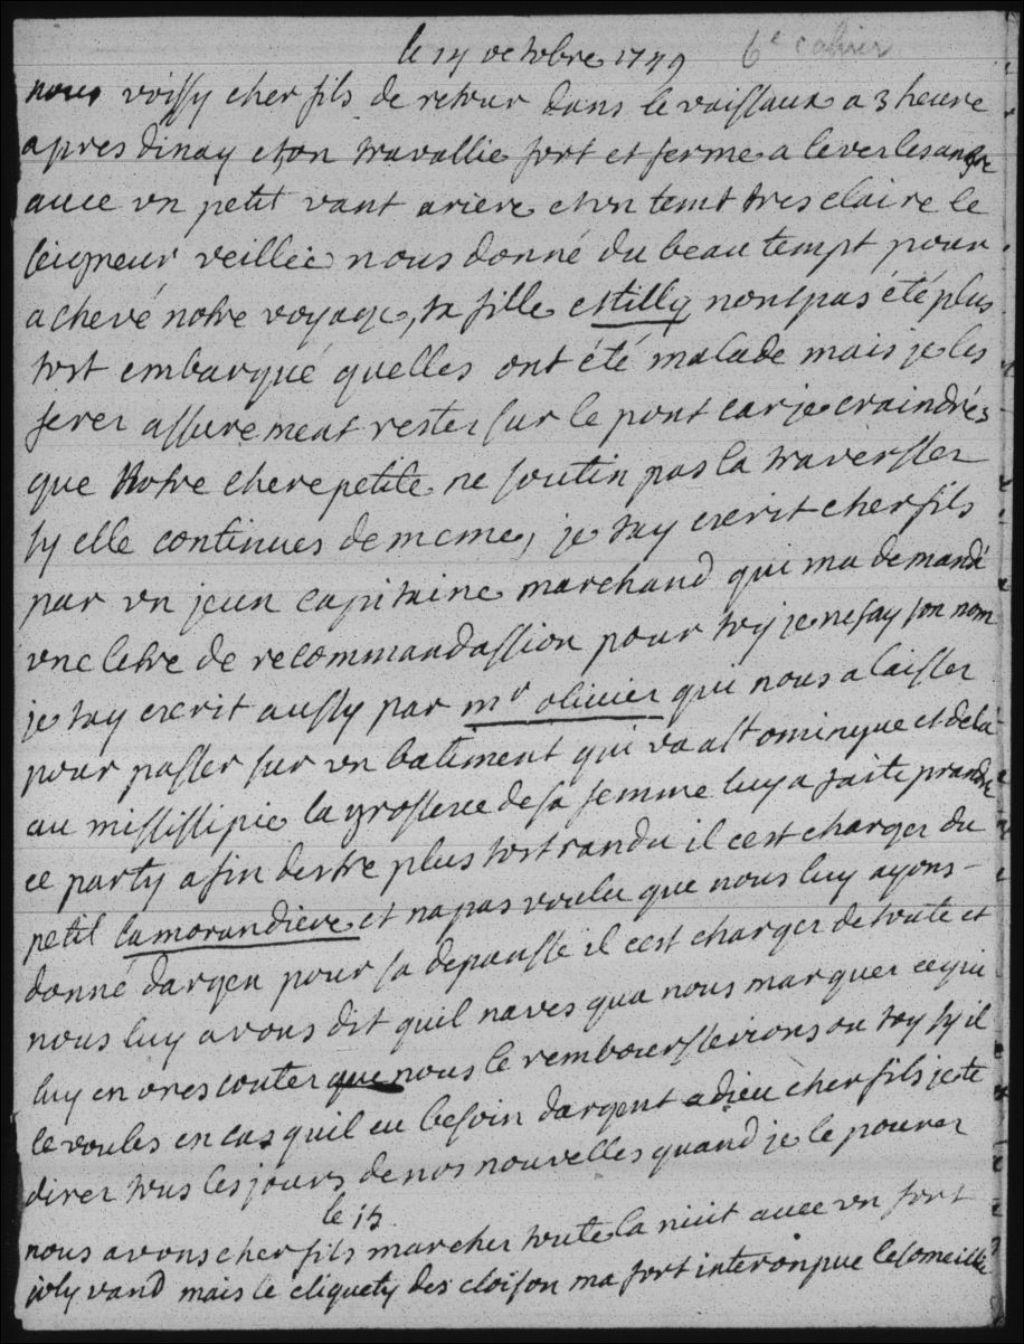 le 14 octobre 1749 6e cahier
nous voissy cher fils de retour dans le vaissaux a 3 heure
apres dinay et on travallie fort et ferme a lever les ancre
avec un petit vant ariere et un temt tres claire le
seigneur veillie nous donné du beau tempt pour
achevé notre voyage, ta fille et tilly nont pas été plus
tost embarqué quelles ont été malade mais je les
ferer assurement rester sur le pont car je craindrés
que notre chere petite ne soutin pas la traversser
sy elle continues de meme, je tay ecrit cher fils
par un jeun capitaine marchand qui ma demandé
une letre de recommandassion pour toy je ne say son nom
je tay ecrit aussy par mr olivier qui nous a laisser
pour passer sur un batiment qui va a st domingue et de la
au missisipie la grossesse de sa femme luy a faite prandre
ce party afin destre plus tost randu il cest charger du
petit lamorandiere et na pas voulu que nous luy ayons
donné dargen pour sa depansse il cest charger de toute et
nous luy avons dit quil naves qua nous marquer ce qui
luy en ores couter que nous le rembourssierions ou toy sy il
le voules en cas quil eu besoin dargent adieu cher fils je te
direr tous les jours de nos nouvelles quand je le pourer
le 15
nous avons cher fils marcher toute la nuit avec un fort
joly vand mais le cliquety des cloison ma fort interompue le someille